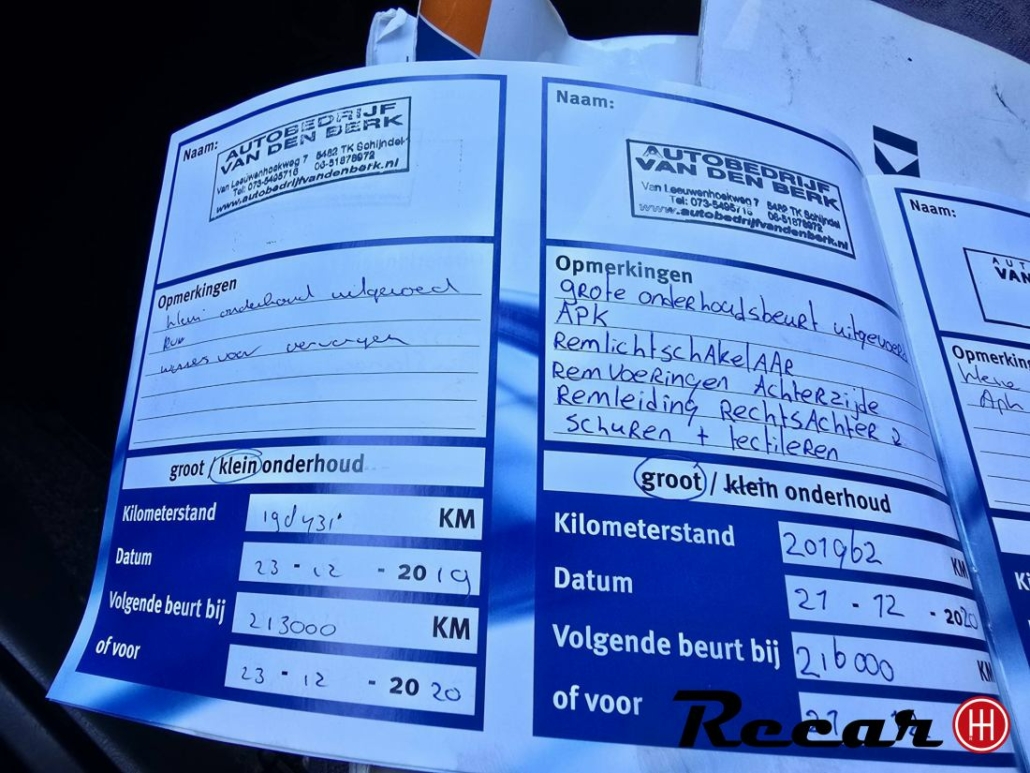 Naam:
AUTOBEDRIJF
VAN DEN BERK
Van Leeuwenhoekweg 7 5482 TK Schijndel
Tel: 073-5495716 06-51878972
www.autobedrijfvandenberk.nl
Opmerkingen
klein onderhoud uitgevoerd
wissers voor vervangen
groot / klein onderhoud
Kilometerstand KM
Datum 23 - 12 - 2019
Volgende beurt bij 213000 KM
of voor 23 - 12 - 2020
Naam:
AUTOBEDRIJF
VAN DEN BERK
Van Leeuwenhoekweg 7 5482 TK Schijndel
Tel: 073-5495716 06-51878972
www.autobedrijfvandenberk.nl
Opmerkingen
grote onderhoudsbeurt uitgevoerd
APK
RemlichtschakelAAR
RemvoeRingen Achterzijde
Remleiding RechtsAchter 2
schuren + tectileren
groot / klein onderhoud
Kilometerstand 201962 KM
Datum 21 - 12 - 2020
Volgende beurt bij 216000 KM
of voor
Naam:
AUT
VAN
Opmerkin
kleine
Apk
Ki
Recar